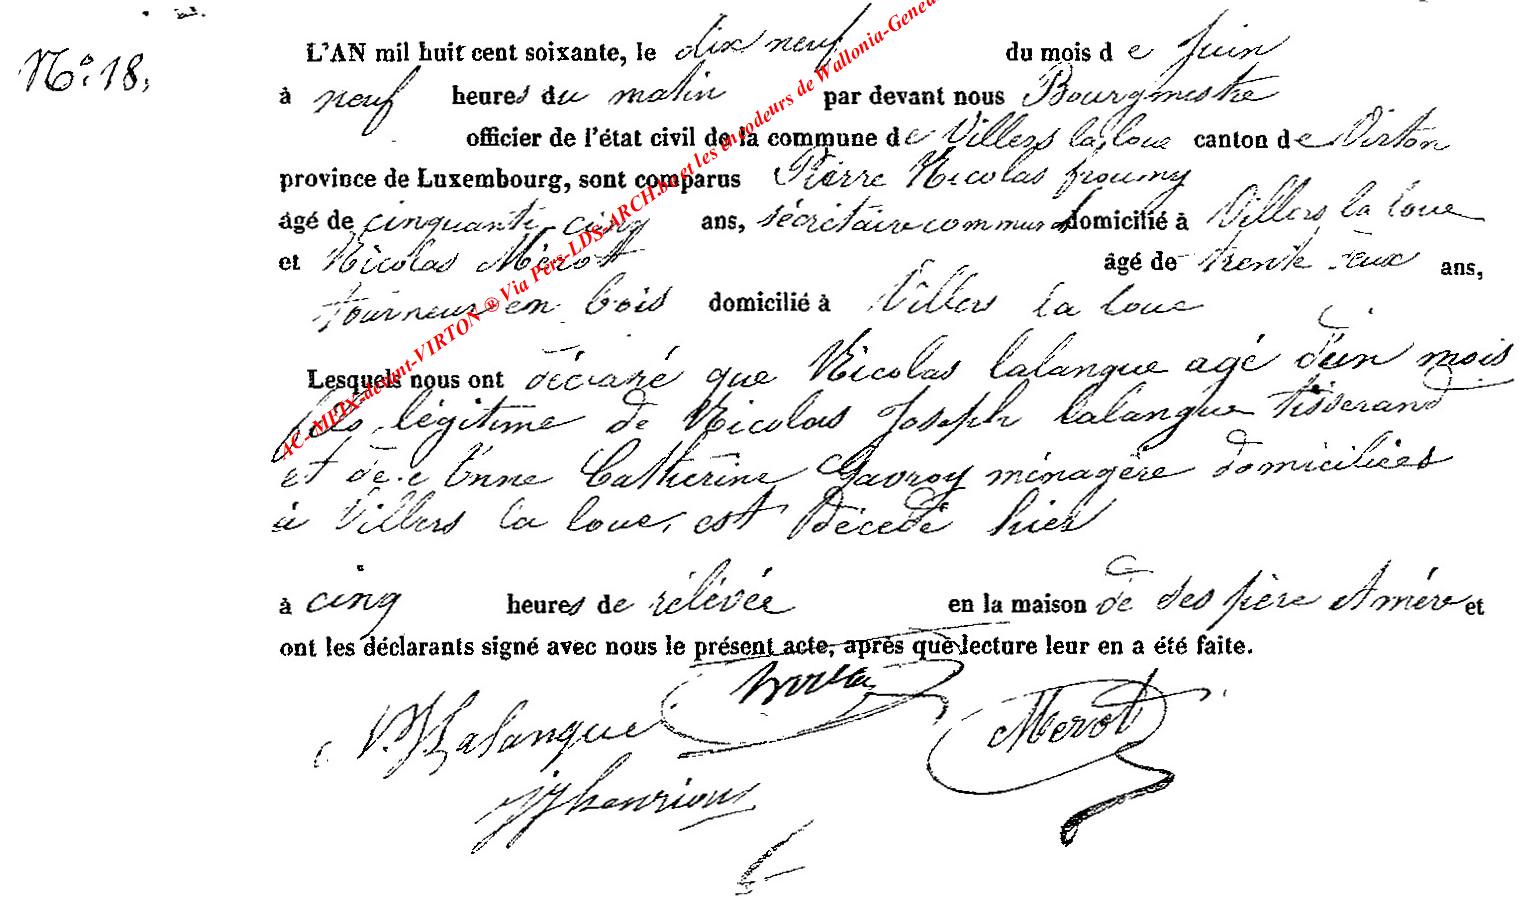 N° 18,
L'AN mil huit cent soixante, le dix neuf du mois de Juin
à neuf heures du matin par devant nous Bourgmestre
officier de l'état civil de la commune de Villers la loue canton de Virton
province de Luxembourg, sont comparus Pierre Nicolas froumy
âgé de cinquante cinq ans, sécrétaire communal domicilié à Villers la loue
et Nicolas Mérot âgé de trente deux ans,
tourneur en bois domicilié à Villers la loue
Lesquels nous ont déclaré que Nicolas lalangue agé d'un mois
fils légitime de Nicolas Joseph lalangue tisserand
et de Anne Catherine Gavroy ménagère domiciliées
à Villers la loue, est décédé hier
à cinq heures de rélévée en la maison de ses père et mère et
ont les déclarants signé avec nous le présent acte, après que lecture leur en a été faite.
Lalangue Merot
henrion
4C-MEIX-devant-VIRTON ® Via Pers-LDS-ARCH.be et les encodeurs de Wallonia-Genea